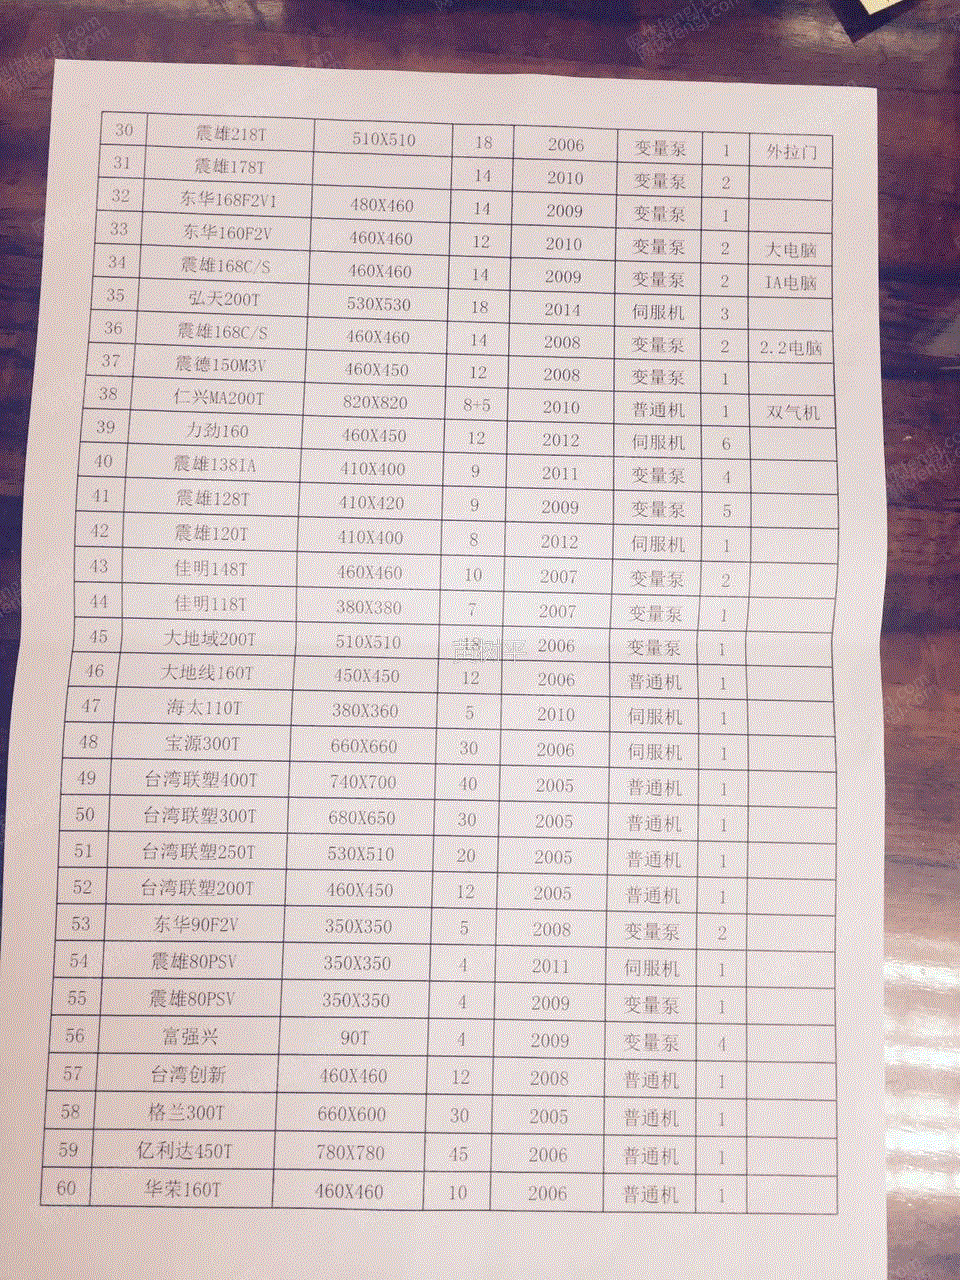 30 震雄218T 510X510 18 2006 变量泵 1 外拉门
31 震雄178T 14 2010 变量泵 2
32 东华168F2V1 480X460 14 2009 变量泵 1
33 东华160F2V 460X460 12 2010 变量泵 2 大电脑
34 震雄168C/S 460X460 14 2009 变量泵 2 IA电脑
35 弘天200T 530X530 18 2014 伺服机 3
36 震雄168C/S 460X460 14 2008 变量泵 2 2.2电脑
37 震德150M3V 460X450 12 2008 变量泵 1
38 仁兴MA200T 820X820 8+5 2010 普通机 1 双气机
39 力劲160 460X450 12 2012 伺服机 6
40 震雄138IA 410X400 9 2011 变量泵 4
41 震雄128T 410X420 9 2009 变量泵 5
42 震雄120T 410X400 8 2012 伺服机 1
43 佳明148T 460X460 10 2007 变量泵 2
44 佳明118T 380X380 7 2007 变量泵 1
45 大地域200T 510X510 2006 变量泵 1
46 大地线160T 450X450 12 2006 普通机 1
47 海太110T 380X360 5 2010 伺服机 1
48 宝源300T 660X660 30 2006 伺服机 1
49 台湾联塑400T 740X700 40 2005 普通机 1
50 台湾联塑300T 680X650 30 2005 普通机 1
51 台湾联塑250T 530X510 20 2005 普通机 1
52 台湾联塑200T 460X450 12 2005 普通机 1
53 东华90F2V 350X350 5 2008 变量泵 2
54 震雄80PSV 350X350 4 2011 伺服机 1
55 震雄80PSV 350X350 4 2009 变量泵 1
56 富强兴 90T 4 2009 变量泵 4
57 台湾创新 460X460 12 2008 普通机 1
58 格兰300T 660X600 30 2005 普通机 1
59 亿利达450T 780X780 45 2006 普通机 1
60 华荣160T 460X460 10 2006 普通机 1